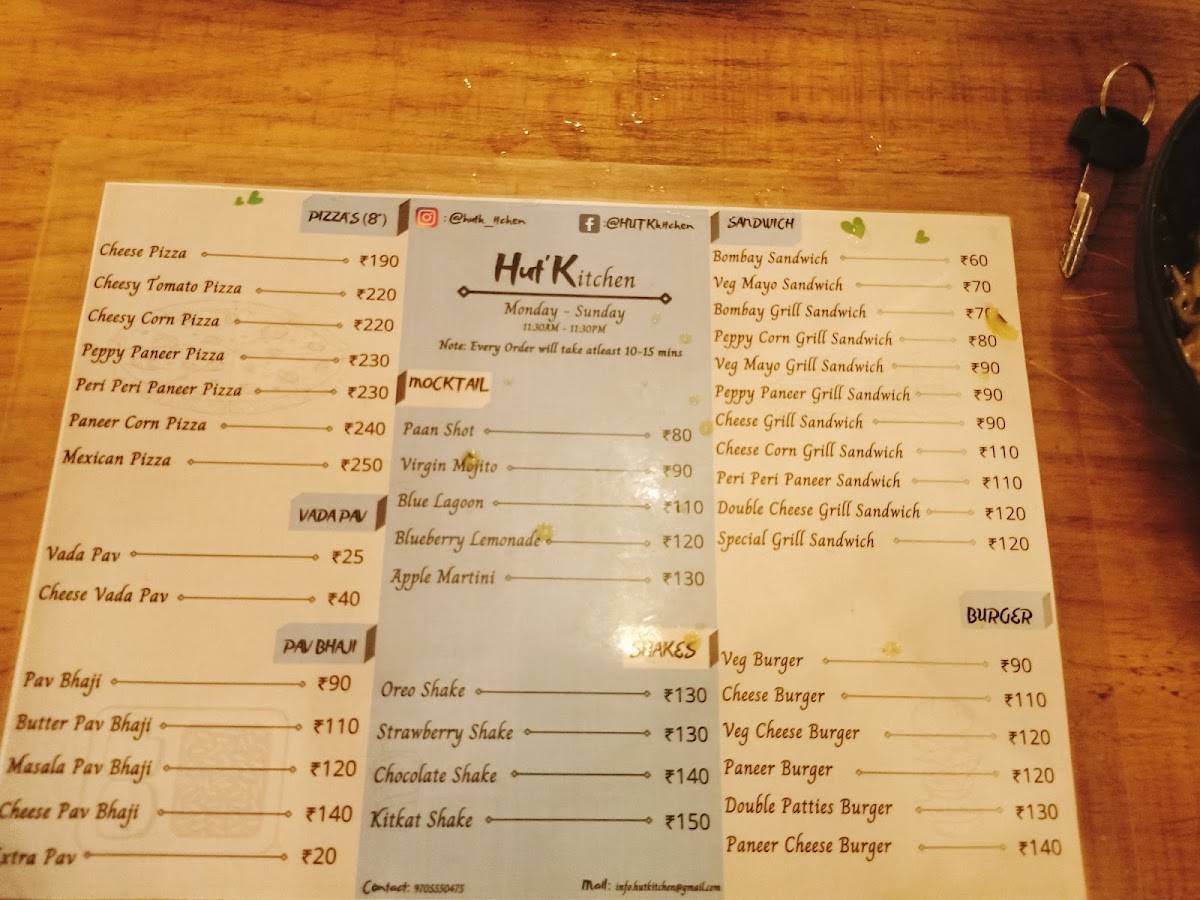 PIZZA'S (8")
Cheese Pizza ₹190
Cheesy Tomato Pizza ₹220
Cheesy Corn Pizza ₹220
Peppy Paneer Pizza ₹230
Peri Peri Paneer Pizza ₹230
Paneer Corn Pizza ₹240
Mexican Pizza ₹250
VADA PAV
Vada Pav ₹25
Cheese Vada Pav ₹40
PAV BHAJI
Pav Bhaji ₹90
Butter Pav Bhaji ₹110
Masala Pav Bhaji ₹120
Cheese Pav Bhaji ₹140
Extra Pav ₹20
: @HUTKkitchen
Hut'Kitchen
Monday - Sunday
11:30AM - 11:30PM
Note: Every Order will take atleast 10-15 mins
MOCKTAIL
Paan Shot ₹80
Virgin Mojito ₹90
Blue Lagoon ₹110
Blueberry Lemonade ₹120
Apple Martini ₹130
SHAKES
Oreo Shake ₹130
Strawberry Shake ₹130
Chocolate Shake ₹140
Kitkat Shake ₹150
Contact: 9705550475
Mail: info.hutkitchen@gmail.com
SANDWICH
Bombay Sandwich ₹60
Veg Mayo Sandwich ₹70
Bombay Grill Sandwich ₹70
Peppy Corn Grill Sandwich ₹80
Veg Mayo Grill Sandwich ₹90
Peppy Paneer Grill Sandwich ₹90
Cheese Grill Sandwich ₹90
Cheese Corn Grill Sandwich ₹110
Peri Peri Paneer Sandwich ₹110
Double Cheese Grill Sandwich ₹120
Special Grill Sandwich ₹120
BURGER
Veg Burger ₹90
Cheese Burger ₹110
Veg Cheese Burger ₹120
Paneer Burger ₹120
Double Patties Burger ₹130
Paneer Cheese Burger ₹140